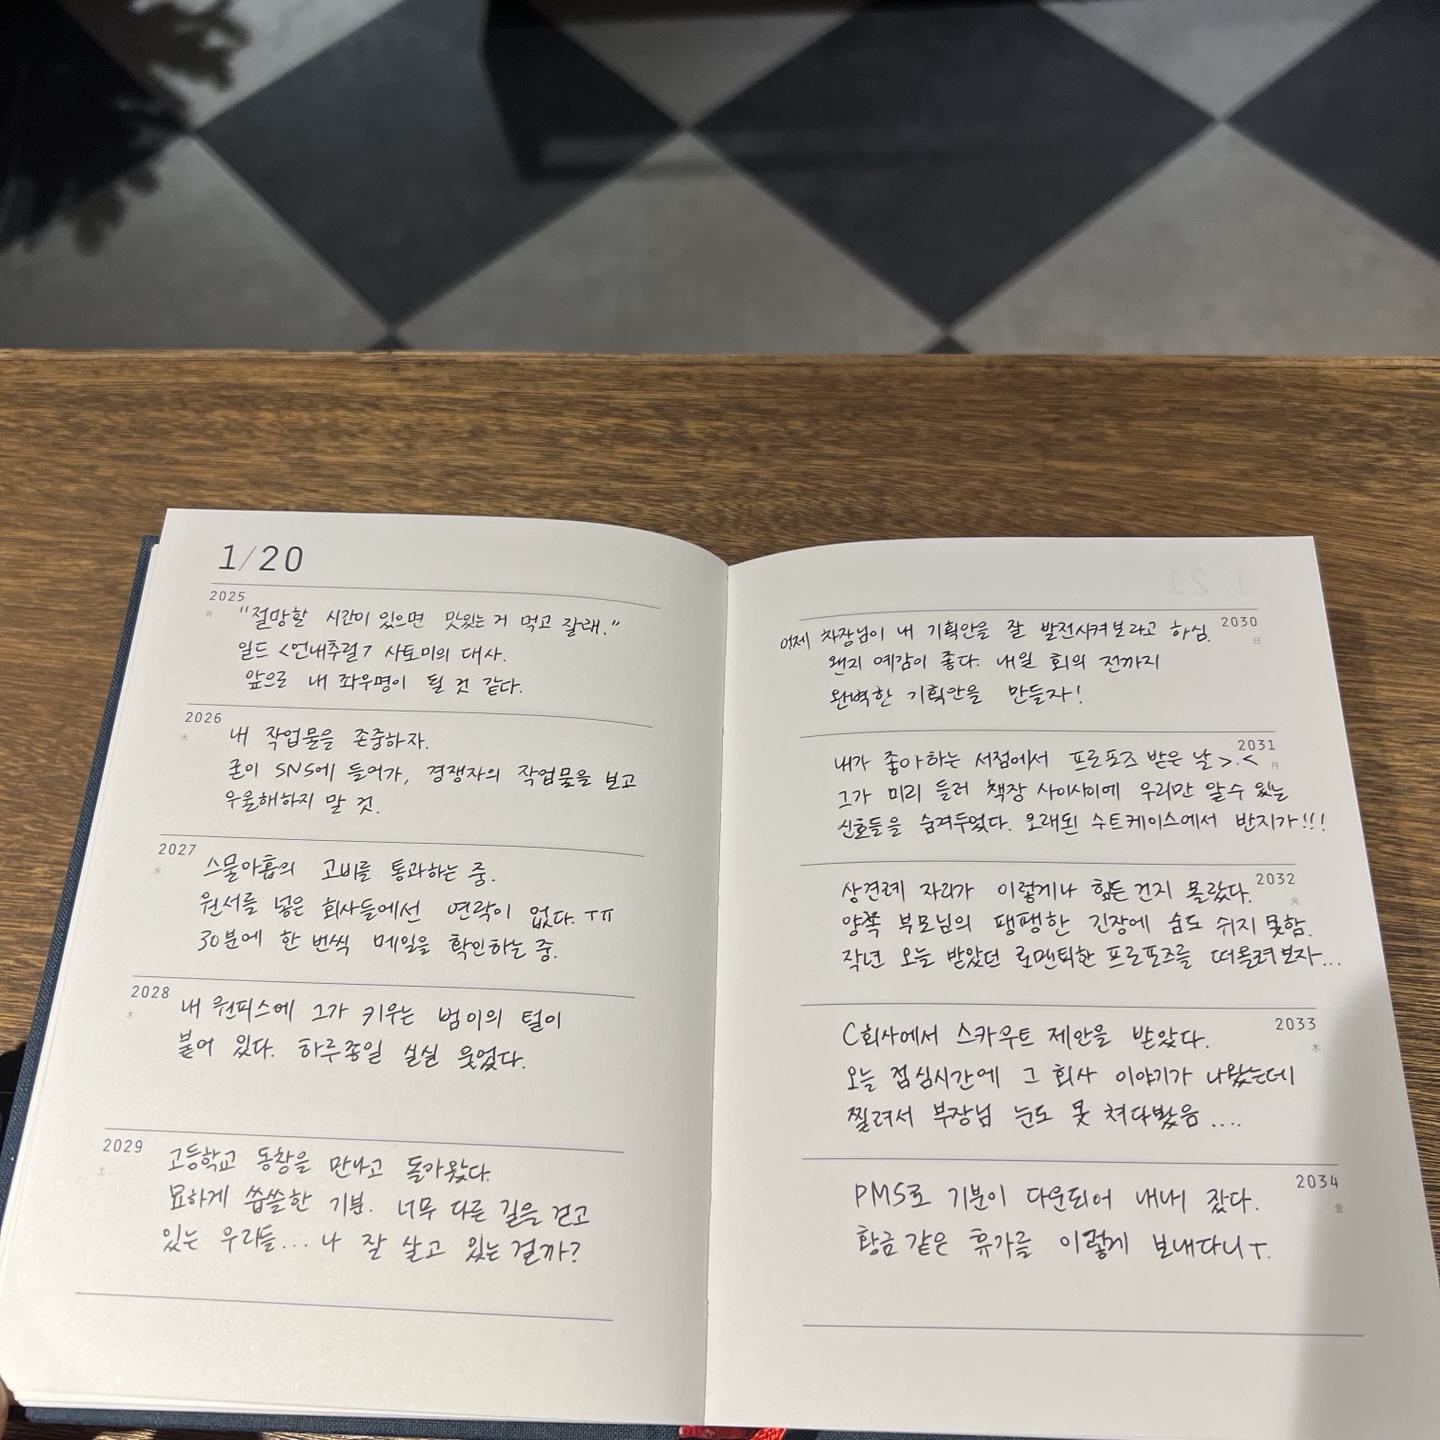 1/20
2025
月
"절망할 시간이 있으면 맛있는 거 먹고 잘래."
일드 <언내추럴> 사토미의 대사.
앞으로 내 좌우명이 될 것 같다.
2026
火
내 작업물을 존중하자.
굳이 SNS에 들어가, 경쟁자의 작업물을 보고
우울해하지 말 것.
2027
水
스물아홉의 고비를 통과하는 중.
원서를 넣은 회사들에선 연락이 없다. ㅜㅠ
30분에 한 번씩 메일을 확인하는 중.
2028
木
내 원피스에 그가 키우는 범이의 털이
붙어 있다. 하루종일 실실 웃었다.
2029
土
고등학교 동창을 만나고 돌아왔다.
묘하게 씁쓸한 기분. 너무 다른 길을 걷고
있는 우리들... 나 잘 살고 있는 걸까?
2030
日
어제 차장님이 내 기획안을 잘 발전시켜보라고 하심.
왠지 예감이 좋다. 내일 회의 전까지
완벽한 기획안을 만들자!
2031
月
내가 좋아하는 서점에서 프로포즈 받은 날 >.<
그가 미리 들러 책장 사이사이에 우리만 알 수 있는
신호들을 숨겨두었다. 오래된 수트케이스에서 반지가!!!
2032
火
상견례 자리가 이렇게나 힘든 건지 몰랐다.
양쪽 부모님의 팽팽한 긴장에 숨도 쉬지 못함.
작년 오늘 받았던 로맨틱한 프로포즈를 떠올려보자...
2033
木
C회사에서 스카우트 제안을 받았다.
오늘 점심시간에 그 회사 이야기가 나왔는데
찔려서 부장님 눈도 못 쳐다봤음....
2034
金
PMS로 기분이 다운되어 내내 잤다.
황금 같은 휴가를 이렇게 보내다니ㅜ.